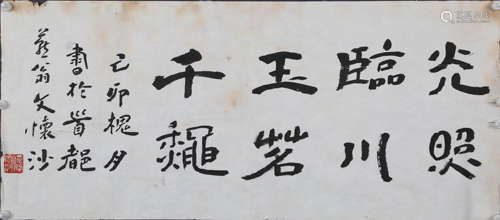 光照
臨川
玉茗
千龝
己卯槐月
書於首都
燕翁文懷沙